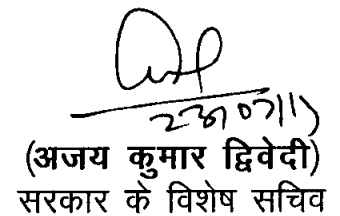 (अजय कुमार द्विवेदी)
सरकार के विशेष सचिव